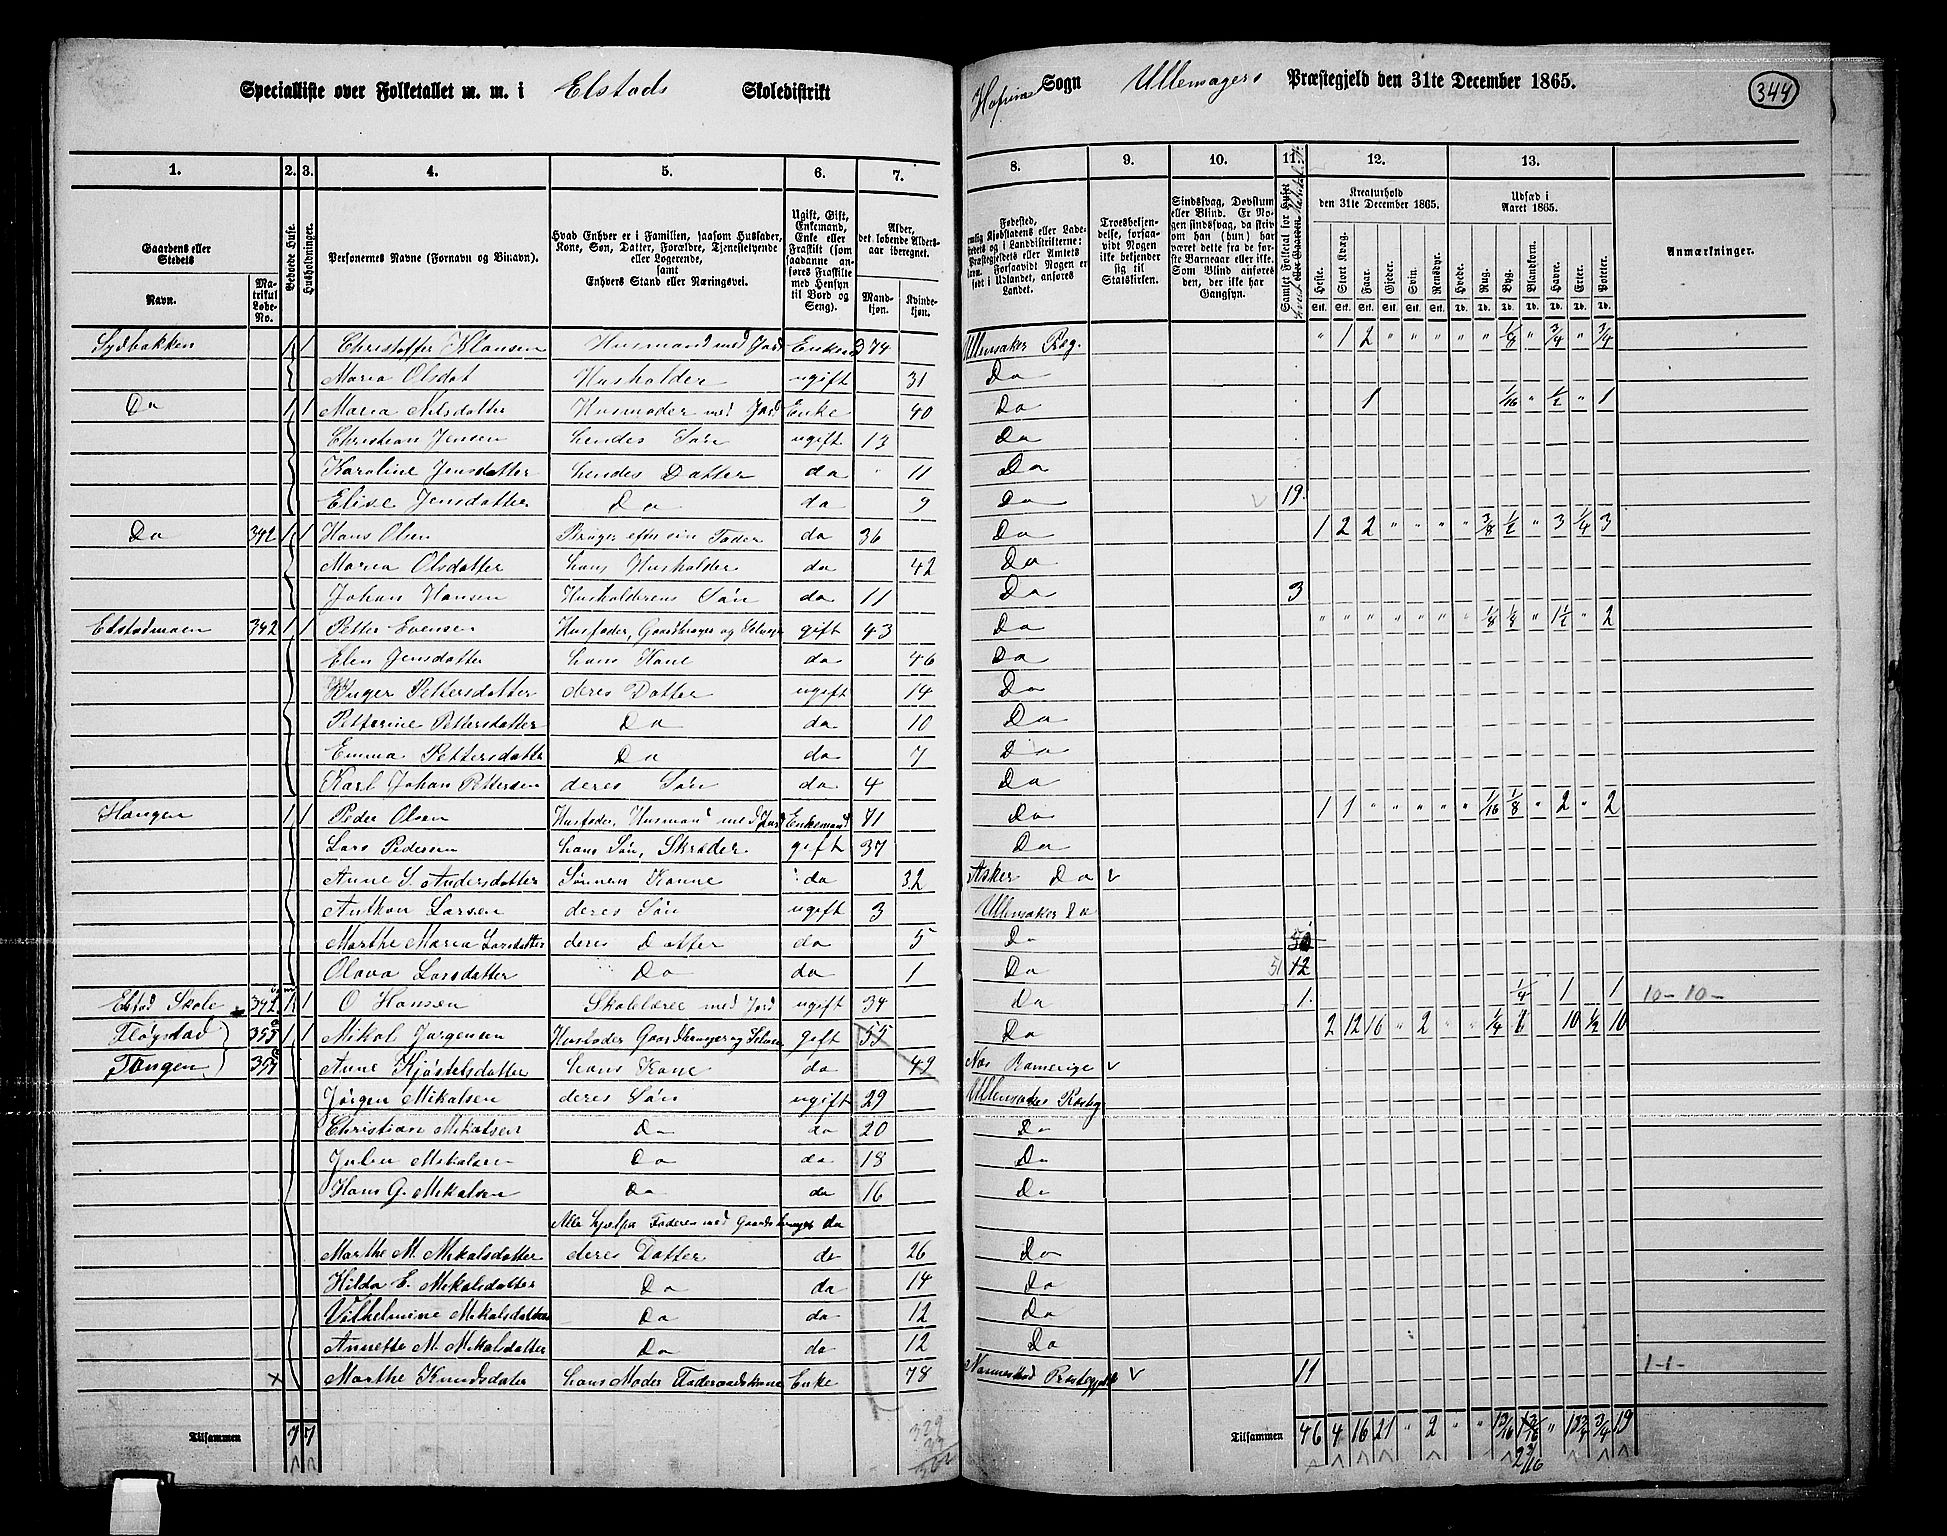 Specialliste over Folketallet m. m. i Elstads Skoledistrikt Sogn Ullensagers Præstegjeld den 31te December 1865. 344
1. 2. 3. 4. 5. 6. 7. 8. 9. 10. 11. 12. 13.
Gaardens eller Stedets Navn. Matrikul Løbe-No. Beboede Huse. Husholdninger. Personernes Navne (Fornavn og Binavn).
Hvad Enhver er i Familien, saasom Husfader, Kone, Søn, Datter, Forældre, Tjenestetyende eller Logerende, samt Enhvers Stand eller Næringsvei.
Ugift, Gift, Enkemand, Enke eller Fraskilt (som saadanne anføres Fraskilte med Hensyn til Bord og Seng).
Alder, det løbende Alders-aar iberegnet. Mandkjøn. Kvindekjøn.
Troesbekjendelse, forsaavidt Nogen ikke bekjender sig til Statskirken.
Sindssvag, Døvstum eller Blind. Er Nogen sindssvag, da skrives om han (hun) har været dette fra før sidste Barneaar eller ikke. Som Blind anføres den, der ikke har Gangsyn.
Kreaturhold den 31te December 1865. Heste. Stort Kvæg. Faar. Gjeder. Svin. Rensdyr.
Udsæd i Aaret 1865. Hvede. Rug. Byg. Blandkorn. Havre. Erter. Poteter.
Anmærkninger.
Sydbakken 1 1 Christoffer Klausen Husmand med Jord Enkemd 74 Ullensaker Præg. " 1 2 " " " " " 1/8 " 3/4 " 3/4
Maria Olsdat Husholder ugift 31 Do
Do 1 1 Maria Nilsdatter Husmoder med Jord Enke 40 Do 1 1/16 " 1/2 " 1
Christian Jensen hendes Søn ugift 13 Do
Karoline Jensdatter hendes Datter do " 11 Do
Elise Jensdatter Do do 9 Do 19.
Do 342 1 1 Hans Olsen Bruger efter sin Fader do 36 Do 1 2 2 " " " " 3/8 1/2 " 3 1/4 3
Maria Olsdatter hans Husholder do 42 Do
Johan Hansen Husholderens Søn do 11 Do 3
Elstadmoen 342 1 1 Petter Evensen Husfader, Gaardbruger og Selveje gift 43 Do " " " " " " " 1/8 1/8 " 1 1/2 " 2
Elen Jensdatter hans Kone do 46 Do
Inger Pettersdatter deres Datter ugift 14 Do
Petterine Pettersdatter Do do 10 Do
Emma Pettersdatter Do do 7 Do
Karl Johan Pettersen deres Søn do 4 Do
Haugen 1 1 Peder Olsen Husfader, Husmand med Jord Enkemand 71 Do 1 1 " " " " " 1/16 1/8 " 2 " 2
Lars Pedersen hans Søn, Skræder gift 37 Do
Anne S. Andersdatter Sønnens Kone do 32 Asker Do v
Anthon Larsen deres Søn ugift 3 Ullensaker Do
Marthe Maria Larsdatter deres Datter do 5 Do
Olava Larsdatter Do do 1 Do 51 12
Elstad Skole 342 1 1 O Hansen Skolelærer med Jord ugift 34 Do 1. 1/4 1 1 10-10-
Fløgstad 353 1 1 Mikal Jørgensen Husfader Gaardbruger og Selveier gift 55 Do 2 12 16 " 2 " " 1/4 " 10 1/2 10
Tangen 354 Anne Kjøstelsdatter hans Kone do 49 Næs Romerige v
Jørgen Mikalsen deres Søn ugift 29 Ullensakes Præstg
Christian Mikalsen Do do 20 Do
Julin Mikalsen Do do 18 Do
Hans G. Mikalsen Do do 16 Do
Alle hjælpe Faderen med Gaardsbruget do
Marthe M. Mikalsdatter deres Datter do 26 Do
Hilda E. Mikalsdatter Do do 14 Do
Vilhelmine Mikalsdatter Do do 12 Do
Annette M. Mikalsdatter Do do 12 Do
x Marthe Knudsdater hans Moder Føderaadskone Enke 78 Nannestad Præstegjeld v 11 1-1-
Tilsammen 7 7 Tilsammen 46 4 16 21 " 2 " " 13/16 " 3/4 19
329
33
362